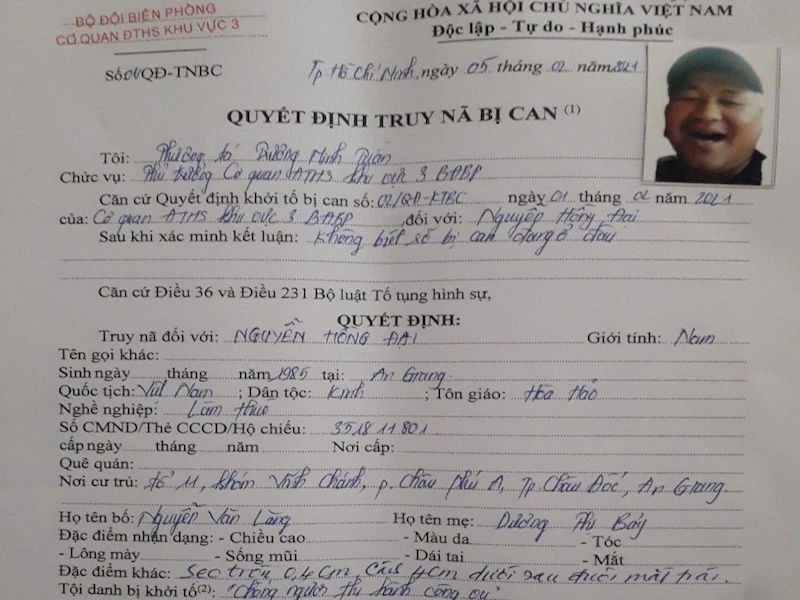 BỘ ĐỘI BIÊN PHÒNG
CƠ QUAN ĐTHS KHU VỰC 3
CỘNG HÒA XÃ HỘI CHỦ NGHĨA VIỆT NAM
Độc lập - Tự do - Hạnh phúc
Số 01/QĐ-TNBC
Tp Hồ Chí Minh, ngày 05 tháng 02 năm 2021
QUYẾT ĐỊNH TRUY NÃ BỊ CAN (1)
Tôi: Thượng tá Dương Minh Tuấn
Chức vụ: Phó trưởng Cơ quan ĐTHS khu vực 3 BĐBP
Căn cứ Quyết định khởi tố bị can số: 02/QĐ-KTBC ngày 01 tháng 02 năm 2021
của: Cơ quan ĐTHS khu vực 3 BĐBP đối với: Nguyễn Hồng Đại
Sau khi xác minh kết luận: Không biết số bị can đang ở đâu
Căn cứ Điều 36 và Điều 231 Bộ luật Tố tụng hình sự,
QUYẾT ĐỊNH:
Truy nã đối với: NGUYỄN HỒNG ĐẠI Giới tính: Nam
Tên gọi khác:
Sinh ngày tháng năm 1985 tại: An Giang
Quốc tịch: Việt Nam ; Dân tộc: Kinh ; Tôn giáo: Hòa Hảo
Nghề nghiệp: Làm thuê
Số CMND/Thẻ CCCD/Hộ chiếu: 351811801
cấp ngày tháng năm Nơi cấp:
Quê quán:
Nơi cư trú: tổ 11, khóm Vĩnh Chánh, p. Châu Phú A, Tp Châu Đốc, An Giang
Họ tên bố: Nguyễn Văn Lăng Họ tên mẹ: Dương Thị Bảy
Đặc điểm nhận dạng: - Chiều cao - Màu da - Tóc
- Lông mày - Sống mũi - Dái tai - Mắt
Đặc điểm khác: Sẹo tròn 0,4cm, cách 4cm dưới sau đuôi mắt trái.
Tội danh bị khởi tố(2): "Chống người thi hành công vụ"